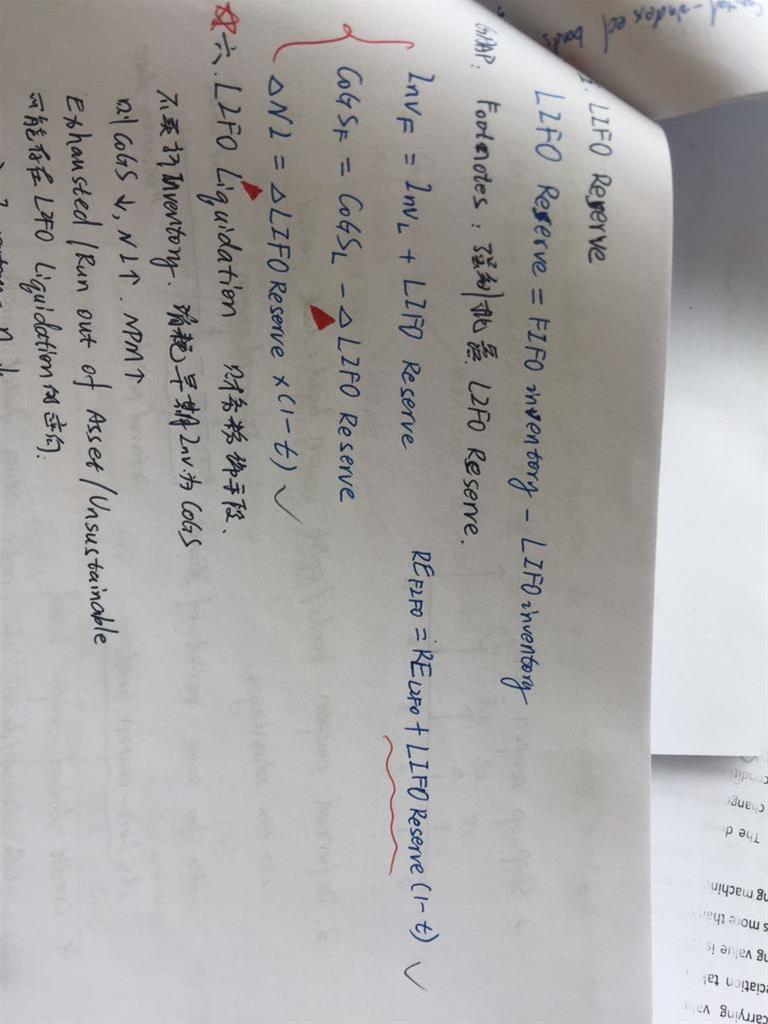 2. LIFO Reserve
LIFO Reserve = FIFO inventory - LIFO inventory
GAAP: Footnotes: 强制披露 LIFO Reserve.
InvF = InvL + LIFO Reserve
REFIFO = RELIFO + LIFO Reserve (1-t) ✓
COGSF = COGSL - △LIFO Reserve
△NI = △LIFO Reserve × (1-t) ✓
六. LIFO Liquidation 财务粉饰手段.
不买新Inventory. 消耗早期Inv.为COGS
则COGS↓, NI↑. NPM↑
Exhausted/Run out of Asset/Unsustainable
可能存在LIFO Liquidation的意向.
-indexed bonds
condit
change
The d
ng machin
s more tha
ng value is
eciation ta
carrying valu